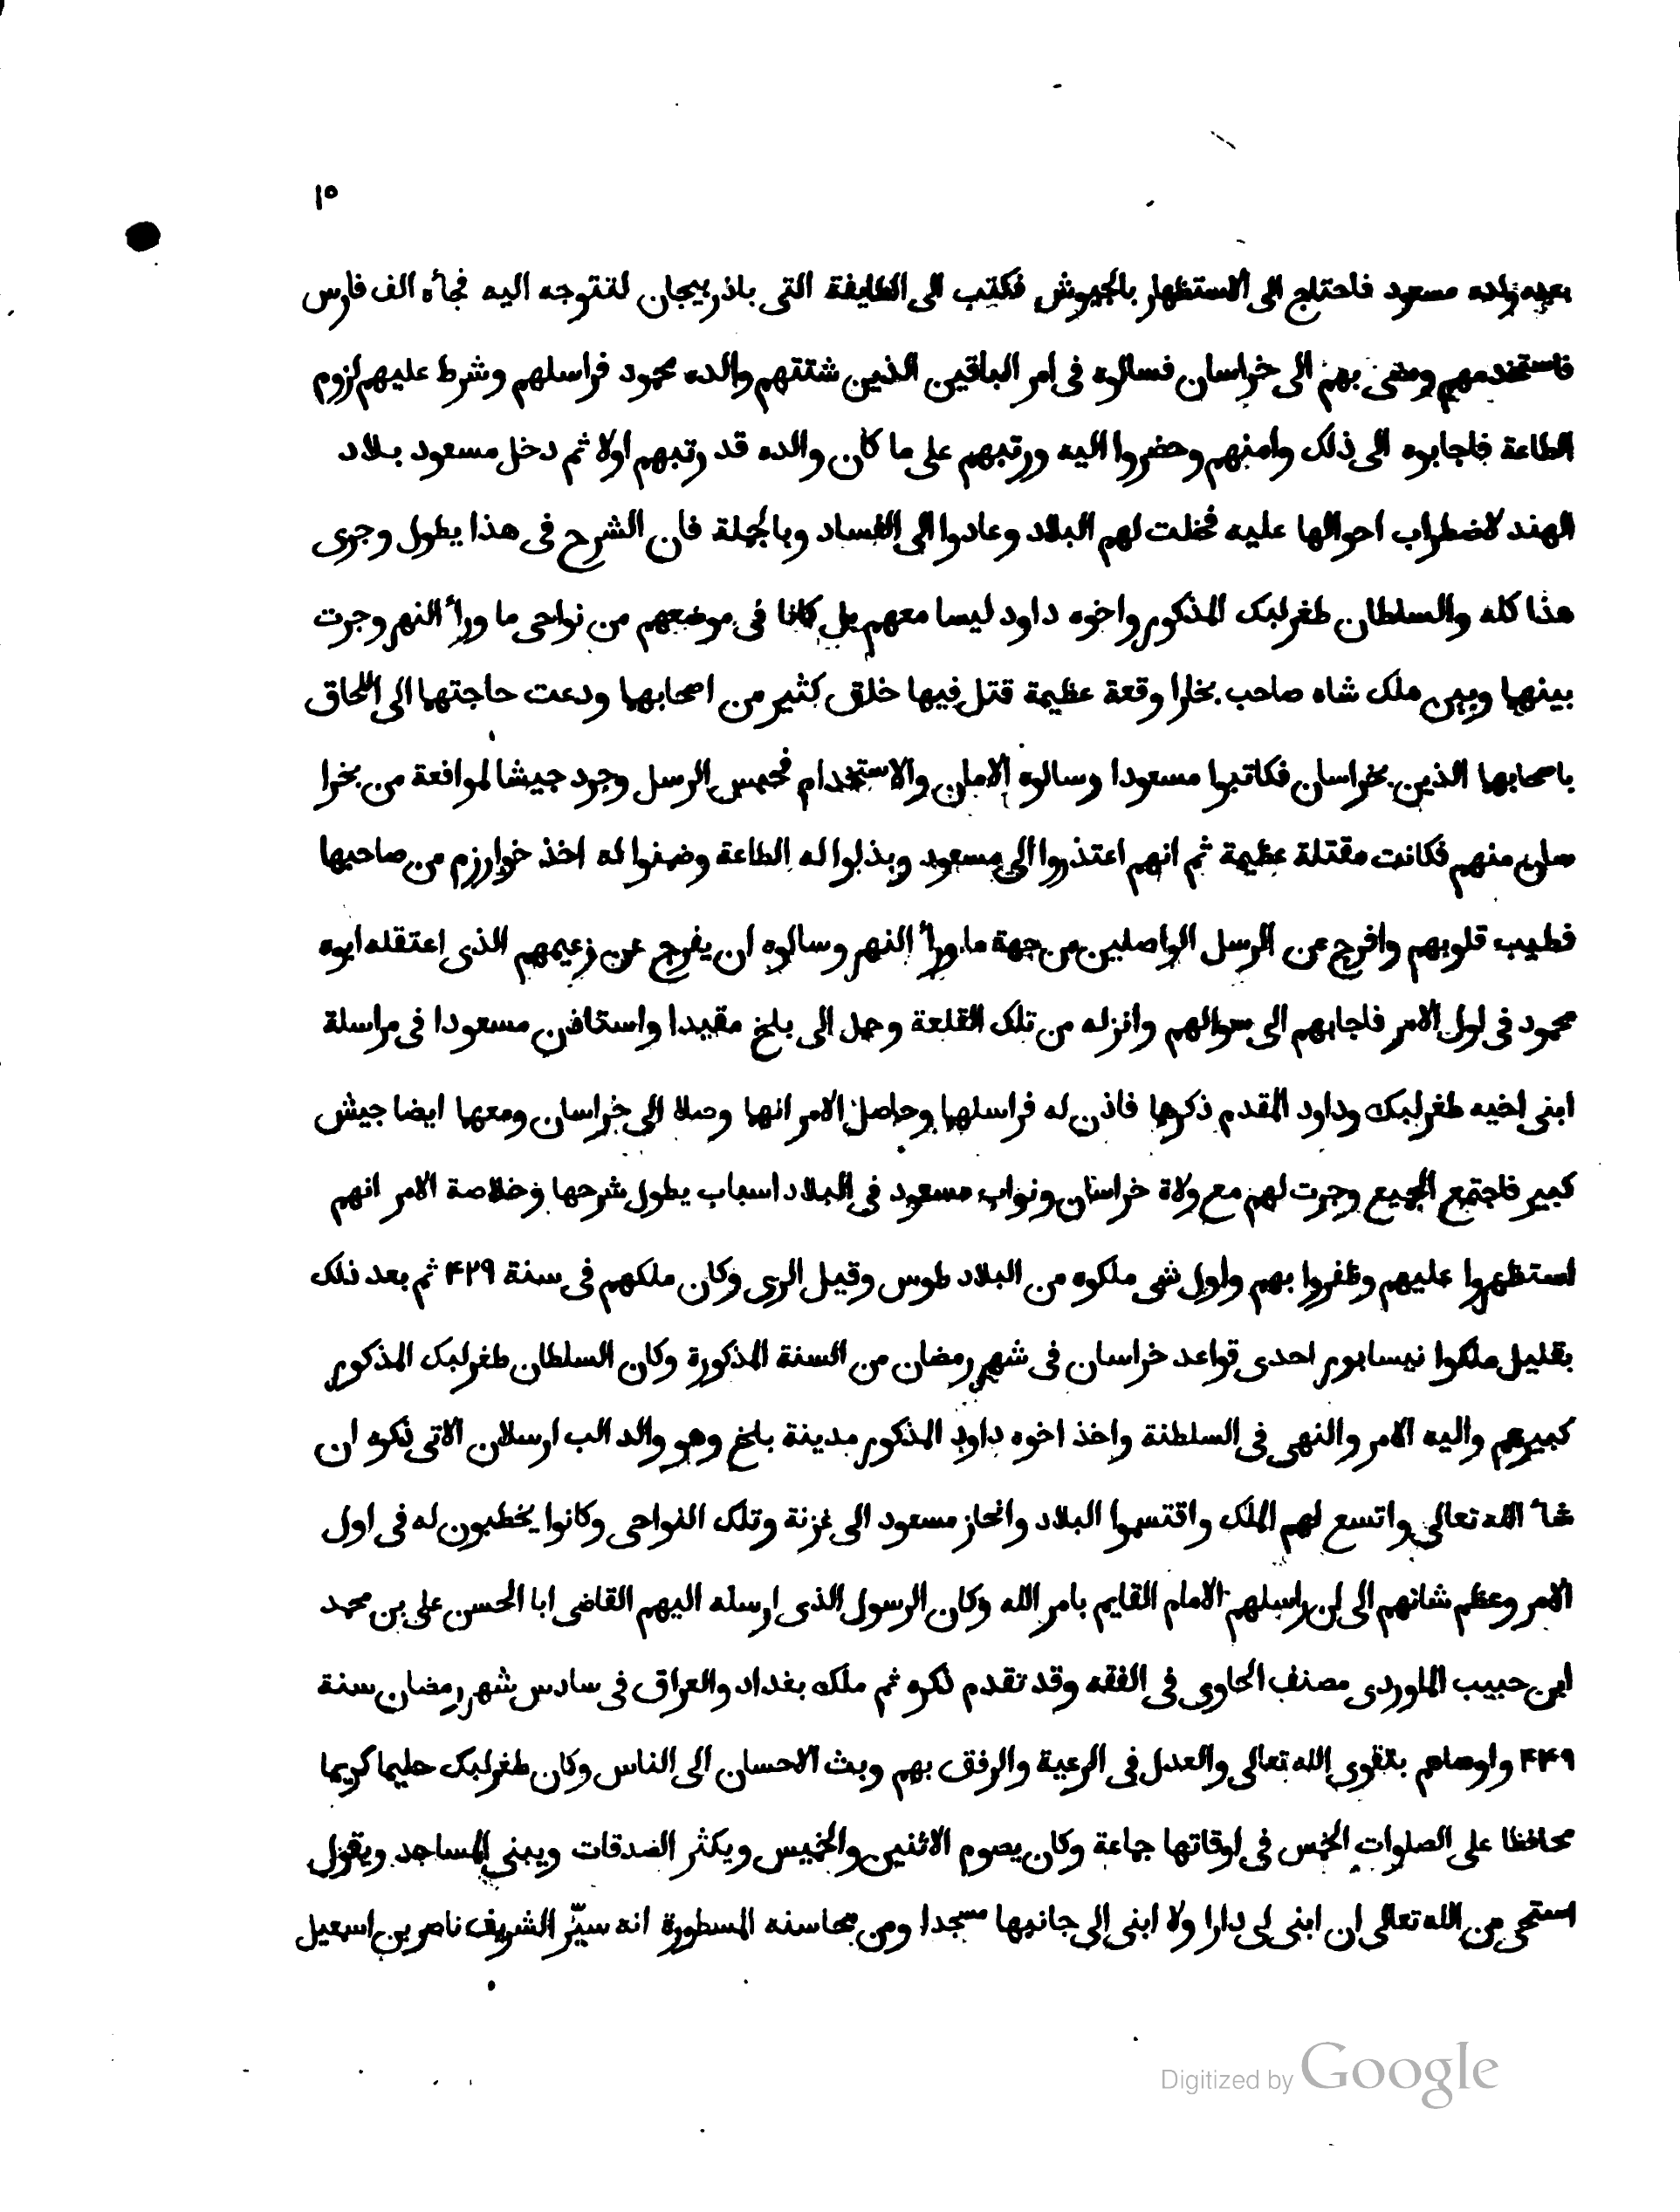 ١٥
بعده ولده مسعود فاحتاج الى الاستظهار بالجيوش فكتب الى الطايفة التى باذربيجان لتتوجه اليه فجاْه الف فارس
فاستخدمهم ومضى بهم الى خراسان فسالوه فى امر الباقين الذين شتتهم والده محمود فراسلهم وشرط عليهم لزوم
الطاعة فاجابوه الى ذلك وامنهم وحضروا اليه ورتبهم على ما كان والده قد رتبهم اولا ثم دخل مسعود بلاد
الهند لاضطراب احوالها عليه فخلت لهم البلاد وعادوا الى الفساد وبالجملة فان الشرح فى هذا يطول وجرى
هذا كله والسلطان طغرلبک المذكور واخوه داود ليسا معهم بل كانا فى موضعهم من نواحى ما وراْ النهر وجرت
بينهما وبين ملک شاه صاحب بخارا وقعة عظيمة قتل فيها خلق كثير من اصحابهما ودعت حاجتهما الى اللحاق
باصحابهما الذين بخراسان فكاتبوا مسعودا وسالوه الامان والاستخدام فحبس الرسل وجرد جيشا لموافعة من بخرا
سان منهم فكانت مقتلة عظيمة ثم انهم اعتذروا الى مسعود وبذلوا له الطاعة وضمنوا له اخذ خوارزم من صاحبها
فطيب قلوبهم وافرج عن الرسل الواصلين من جهة ما وراْ النهر وسالوه ان يفرج عن زعيمهم الذى اعتقله ابوه
محمود فى اول الامر فاجابهم الى سوالهم وانزله من تلک القلعة وحمل الى بلخ مقيدا واستاذن مسعودا فى مراسلة
ابنى اخيه طغرلبک وداود المقدم ذكرهما فاذن له فراسلهما وحاصل الامر انهما وصلا الى خراسان ومعهما ايضا جيش
كبير فاجتمع الجميع وجرت لهم مع ولاة خراسان ونواب مسعود فى البلاد اسباب يطول شرحها وخلاصة الامر انهم
استظهروا عليهم وظفروا بهم واول شى ملكوه من البلاد طوس وقيل الرى وكان ملكهم فى سنة ۴۲۹ ثم بعد ذلک
بقليل ملكوا نيسابور احدى قواعد خراسان فى شهر رمضان من السنة المذكورة وكان السلطان طغرلبک المذكور
كبيرهم واليه الامر والنهى فى السلطنة واخذ اخوه داود المذكور مدينة بلخ وهو والد الب ارسلان الاتى ذكره ان
شاْ الله تعالى واتسع لهم الملک واقتسموا البلاد وانحاز مسعود الى غزنة وتلک النواحى وكانوا يخطبون له فى اول
الامر وعظم شانهم الى ان راسلهم الامام القايم بامر الله وكان الرسول الذى ارسله اليهم القاضى ابا الحسن على بن محمد
ابن حبيب الماوردى مصنف الحاوى فى الفقه وقد تقدم ذكره ثم ملكه بغداد والعراق فى سادس شهر رمضان سنة
۴۴۹ واوصاهم بتقوى الله تعالى والعدل فى الرعية والرفق بهم وبث الاحسان الى الناس وكان طغرلبک حليما كريما
محافظا على الصلوات الخمس فى اوقاتها جماعة وكان يصوم الاثنين والخميس ويكثر الصدقات ويبنى المساجد ويقول
استحى من الله تعالى ان ابنى لى دارا ولا ابنى الى جانبها مسجدا ومن محاسنه المسطورة انه سيّر الشريف ناصر بن اسمعيل
Digitized by Google